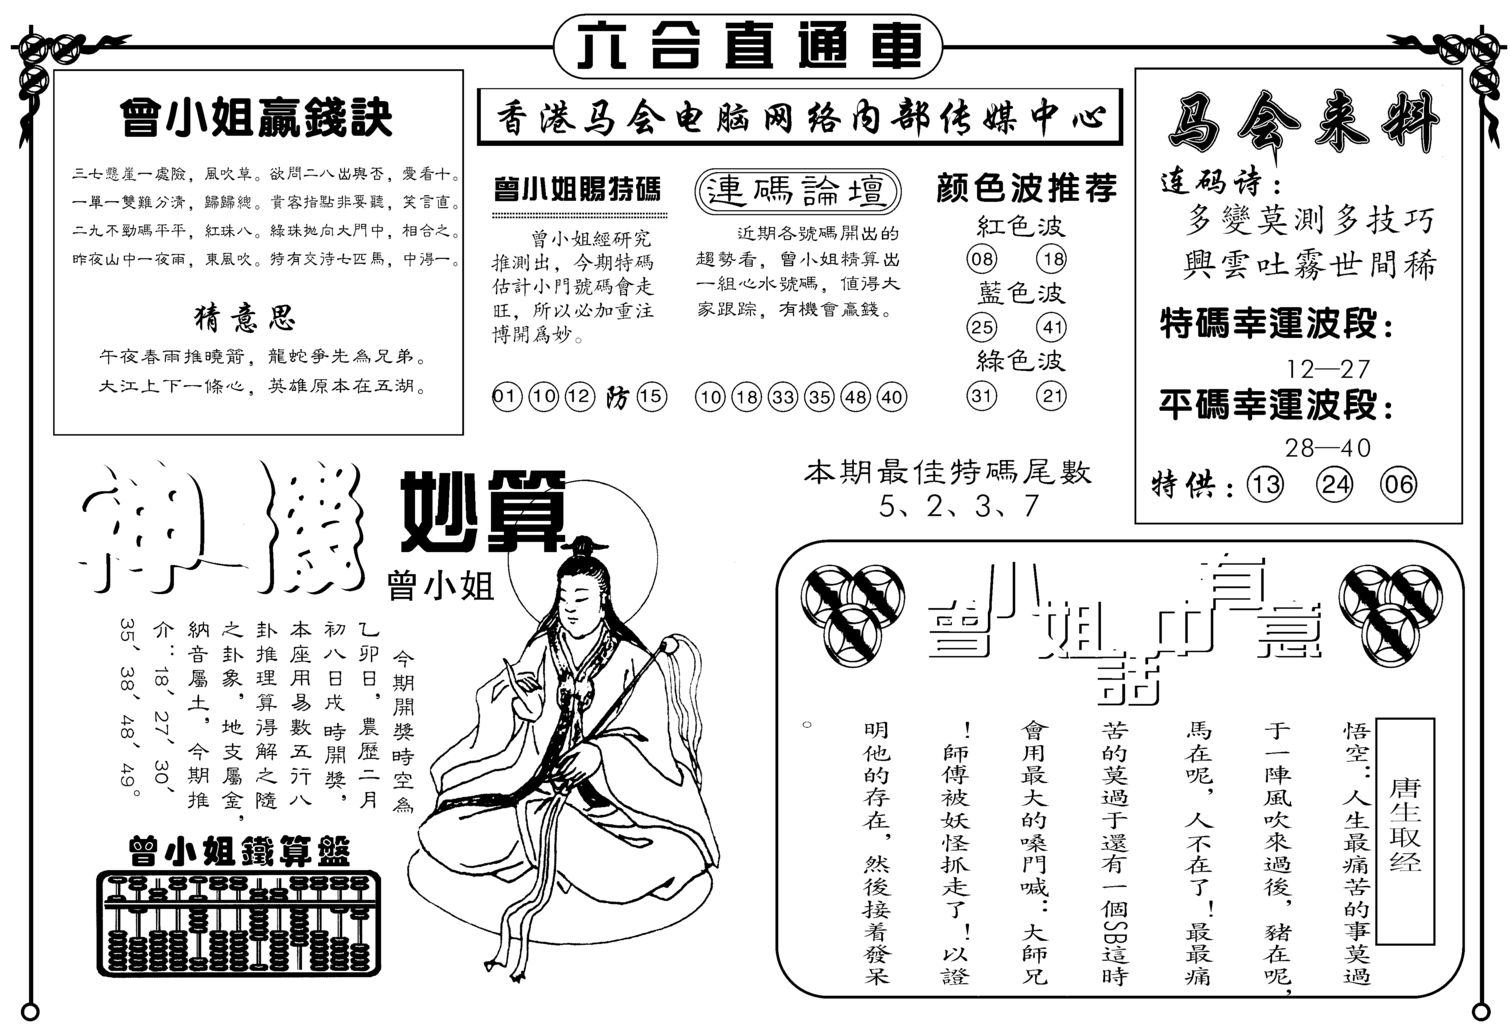 六合直通車
香港马会电脑网络内部传媒中心
曾小姐贏錢訣
三七懸崖一處險，風吹草。欲問二八出與否，愛看十。
一單一雙難分清，歸歸總。貴客指點非要聽，笑言直。
二九不勁碼平平，紅珠八。綠珠拋向大門中，相合之。
昨夜山中一夜雨，東風吹。特有交待七匹馬，中得一。
猜意思
午夜春雨推曉箭，龍蛇爭先為兄弟。
大江上下一條心，英雄原本在五湖。
曾小姐賜特碼
曾小姐經研究
推測出，今期特碼
估計小門號碼會走
旺，所以必加重注
博開爲妙。
01 10 12 防 15
連碼論壇
近期各號碼開出的
趨勢看，曾小姐精算出
一組心水號碼，值得大
家跟踪，有機會贏錢。
10 18 33 35 48 40
颜色波推荐
紅色波
08 18
藍色波
25 41
綠色波
31 21
本期最佳特碼尾數
5、2、3、7
马会来料
连码诗：
多變莫測多技巧
興雲吐霧世間稀
特碼幸運波段：
12—27
平碼幸運波段：
28—40
特供：13 24 06
神機妙算
曾小姐
今期開獎時空為
乙卯日，農歷二月
初八日戌時開獎，
本座用易數五行八
卦推理算得解之隨
之卦象，地支屬金，
納音屬土，今期推
介：18、27、30、
35、38、48、49。
曾小姐鐵算盤
曾小姐話中有意
唐生取经
悟空：人生最痛苦的事莫過
于一陣風吹來過後，豬在呢，
馬在呢，人不在了！最最痛
苦的莫過于還有一個SB這時
會用最大的嗓門喊：大師兄
！師傅被妖怪抓走了！以證
明他的存在，然後接着發呆
。